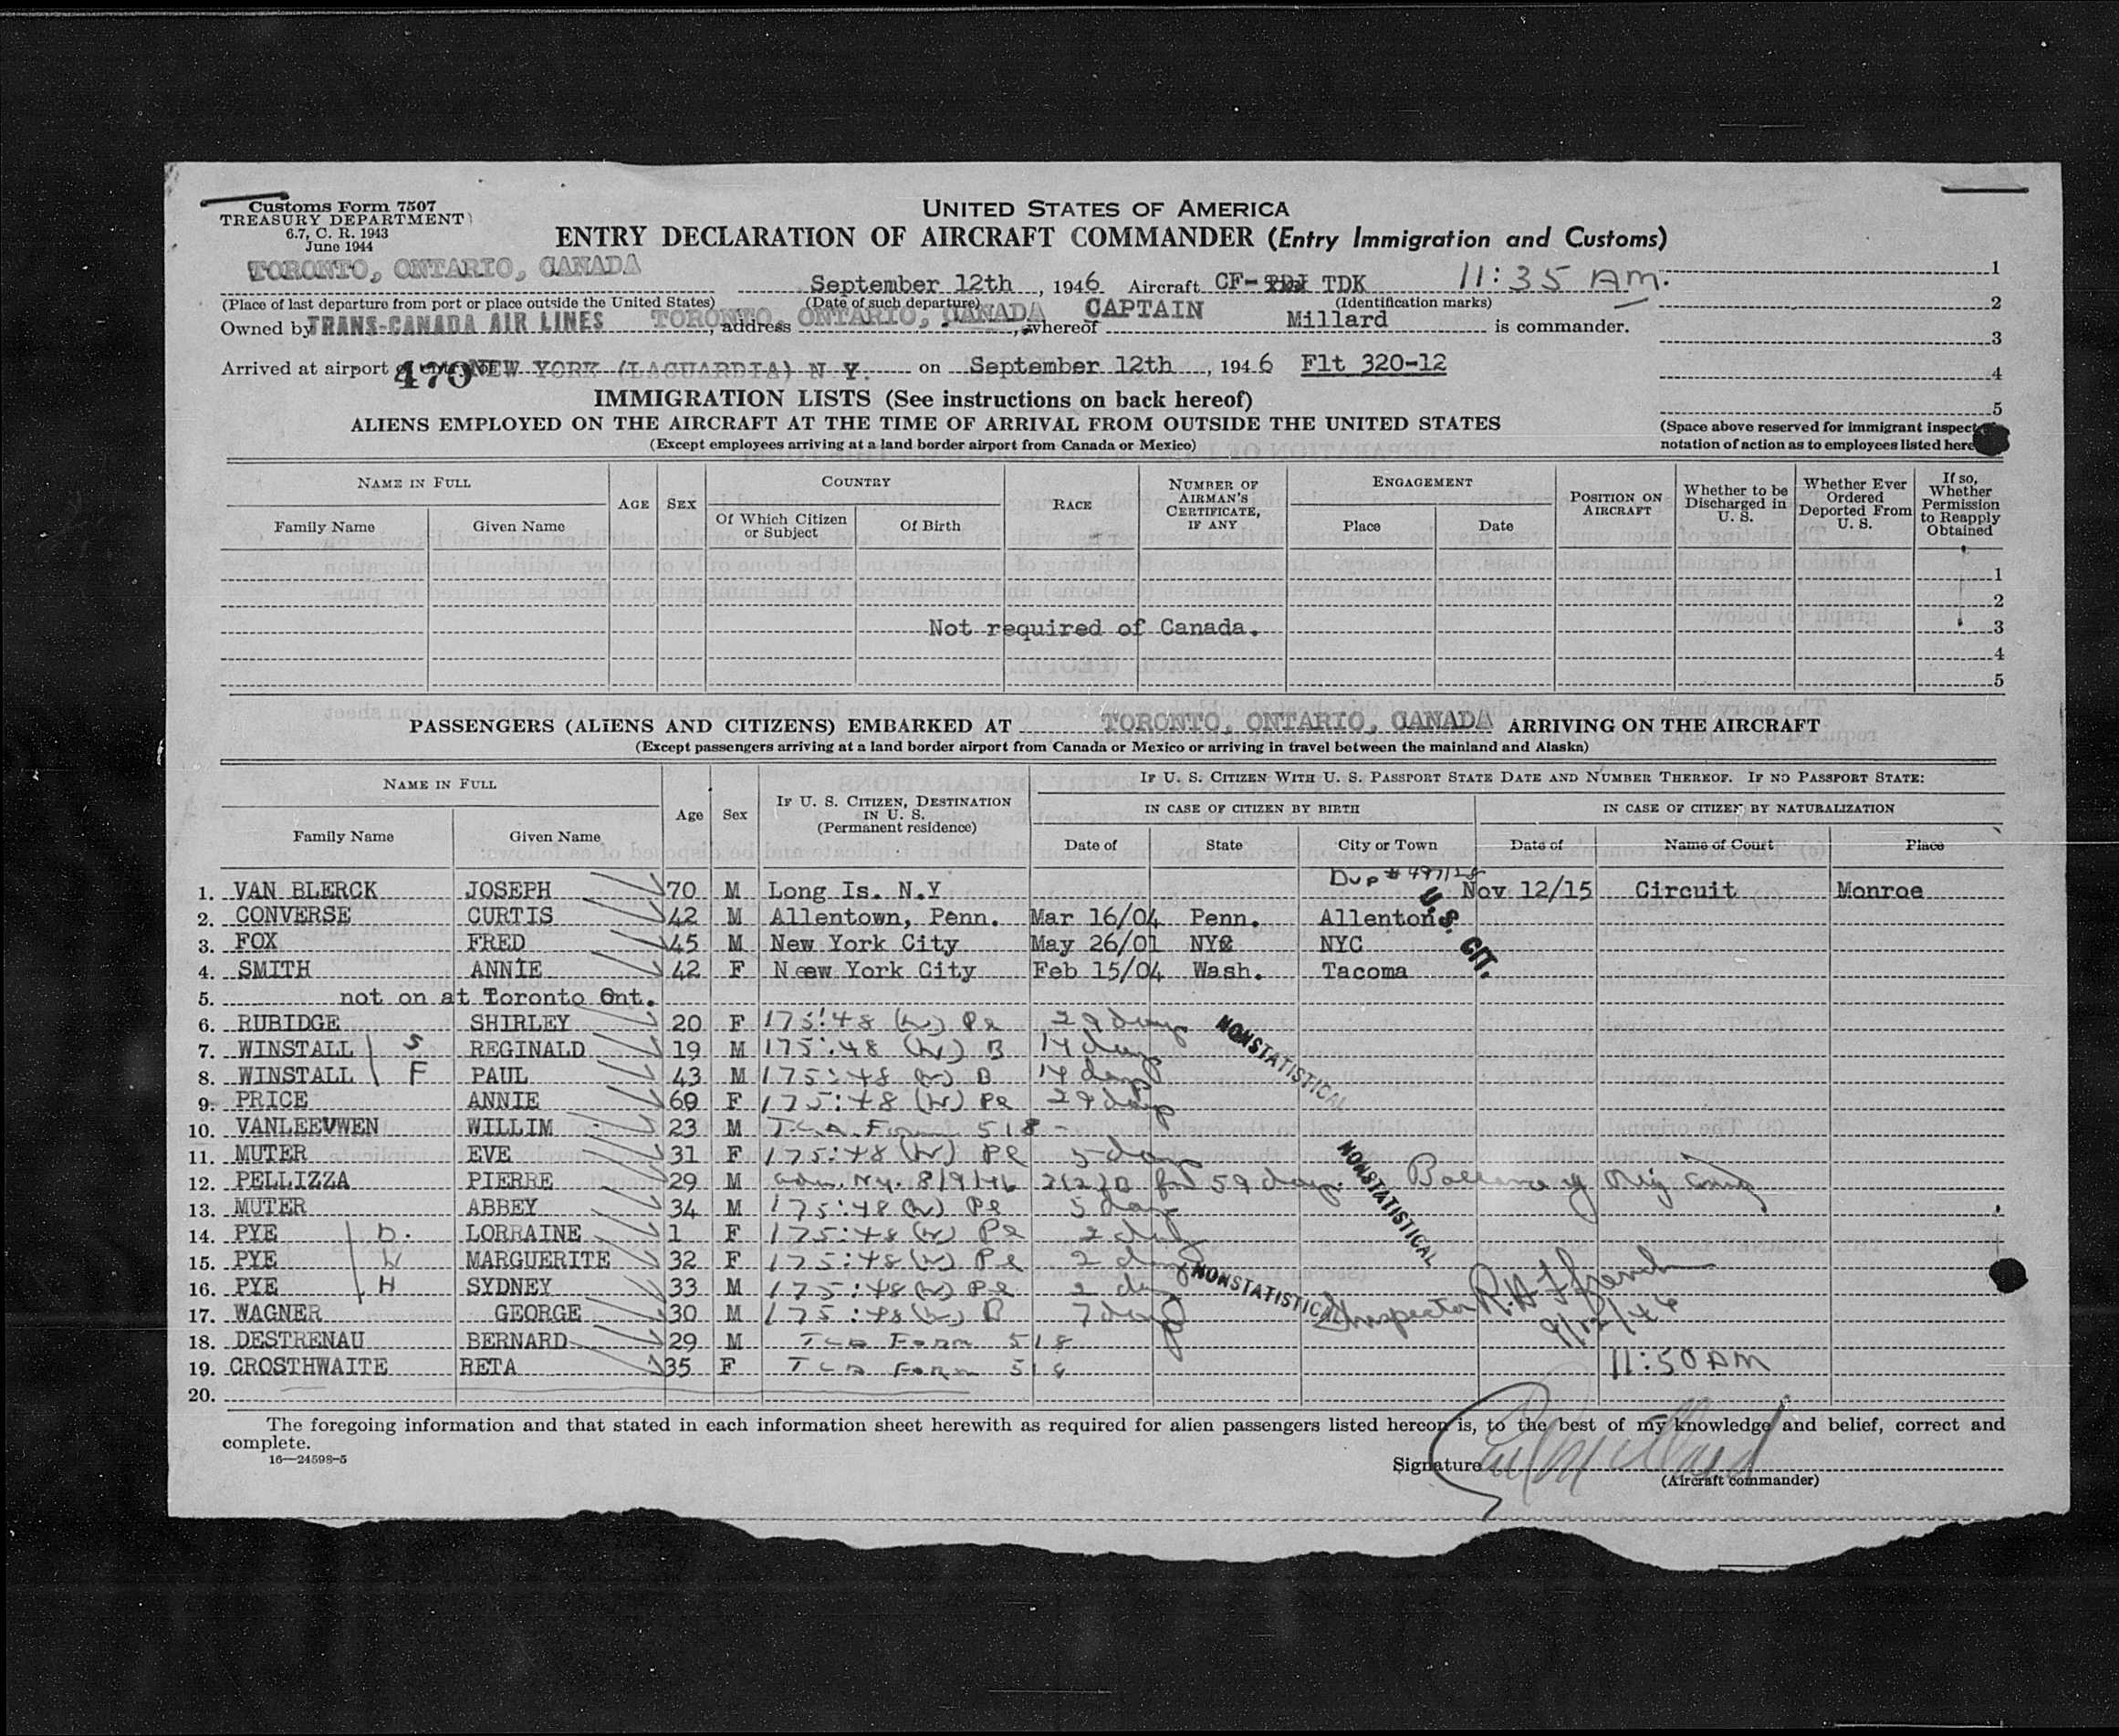 Customs Form 7507
TREASURY DEPARTMENT
6.7, C. R. 1943
June 1944
UNITED STATES OF AMERICA
ENTRY DECLARATION OF AIRCRAFT COMMANDER (Entry Immigration and Customs)
TORONTO, ONTARIO, CANADA September 12th, 1946 Aircraft CF-TDJ TDK 11:35 AM. 1
(Place of last departure from port or place outside the United States) (Date of such departure) (Identification marks) 2
Owned by TRANS-CANADA AIR LINES, address TORONTO, ONTARIO, CANADA, whereof CAPTAIN Millard is commander.
3
Arrived at airport 470 NEW YORK (LAGUARDIA) N. Y. on September 12th, 1946 Flt 320-12 4
IMMIGRATION LISTS (See instructions on back hereof) 5
ALIENS EMPLOYED ON THE AIRCRAFT AT THE TIME OF ARRIVAL FROM OUTSIDE THE UNITED STATES (Space above reserved for immigrant inspect
(Except employees arriving at a land border airport from Canada or Mexico) notation of action as to employees listed here
NAME IN FULL AGE SEX COUNTRY RACE NUMBER OF AIRMAN'S CERTIFICATE, IF ANY ENGAGEMENT POSITION ON AIRCRAFT Whether to be Discharged in U. S. Whether Ever Ordered Deported From U. S. If so, Whether Permission to Reapply Obtained
Family Name Given Name Of Which Citizen or Subject Of Birth Place Date
1
2
Not required of Canada. 3
4
5
PASSENGERS (ALIENS AND CITIZENS) EMBARKED AT TORONTO, ONTARIO, CANADA ARRIVING ON THE AIRCRAFT
(Except passengers arriving at a land border airport from Canada or Mexico or arriving in travel between the mainland and Alaska)
NAME IN FULL Age Sex IF U. S. CITIZEN, DESTINATION IN U. S. (Permanent residence) IF U. S. CITIZEN WITH U. S. PASSPORT STATE DATE AND NUMBER THEREOF. IF NO PASSPORT STATE:
IN CASE OF CITIZEN BY BIRTH IN CASE OF CITIZEN BY NATURALIZATION
Family Name Given Name Date of State City or Town Date of Name of Court Place
1. VAN BLERCK JOSEPH 70 M Long Is. N.Y Dup # Nov 12/15 Circuit Monroe
2. CONVERSE CURTIS 42 M Allentown, Penn. Mar 16/04 Penn. Allenton
3. FOX FRED 45 M New York City May 26/01 NYC NYC
4. SMITH ANNIE 42 F Neew York City Feb 15/04 Wash. Tacoma
U. S. CIT.
5. not on at Toronto Ont.
6. RUBIDGE SHIRLEY 20 F 175:48 (W) Pl 29 days
7. WINSTALL S REGINALD 19 M 175:48 (W) B 14 days
8. WINSTALL F PAUL 43 M 175:48 (W) B 14 days
NONSTATISTICAL
9. PRICE ANNIE 60 F 175:48 (W) Pl 29 days
10. VANLEEUWEN WILLIM 23 M TCA Form 518 -
11. MUTER EVE 31 F 175:48 (W) Pl 5 days
12. PELLIZZA PIERRE 29 M adm. N.Y. 8/9/46 3(2)B for 59 days. Balance of
13. MUTER ABBEY 34 M 175:48 (W) Pl 5 days
NONSTATISTICAL
14. PYE D. LORRAINE 1 F 175:48 (W) Pl 2 days
15. PYE W MARGUERITE 32 F 175:48 (W) Pl 2 days
16. PYE H SYDNEY 33 M 175:48 (W) Pl 2 days
NONSTATISTICAL
17. WAGNER GEORGE 30 M 175:48 (W) B 7 days Inspector R.H. Ffrench
9/12/46
18. DESTRENAU BERNARD 29 M TCA Form 518
19. CROSTHWAITE RETA 35 F TCA Form 518 11:50 AM
20.
The foregoing information and that stated in each information sheet herewith as required for alien passengers listed hereon is, to the best of my knowledge and belief, correct and
complete.
16—24598-5
Signature Millard
(Aircraft commander)